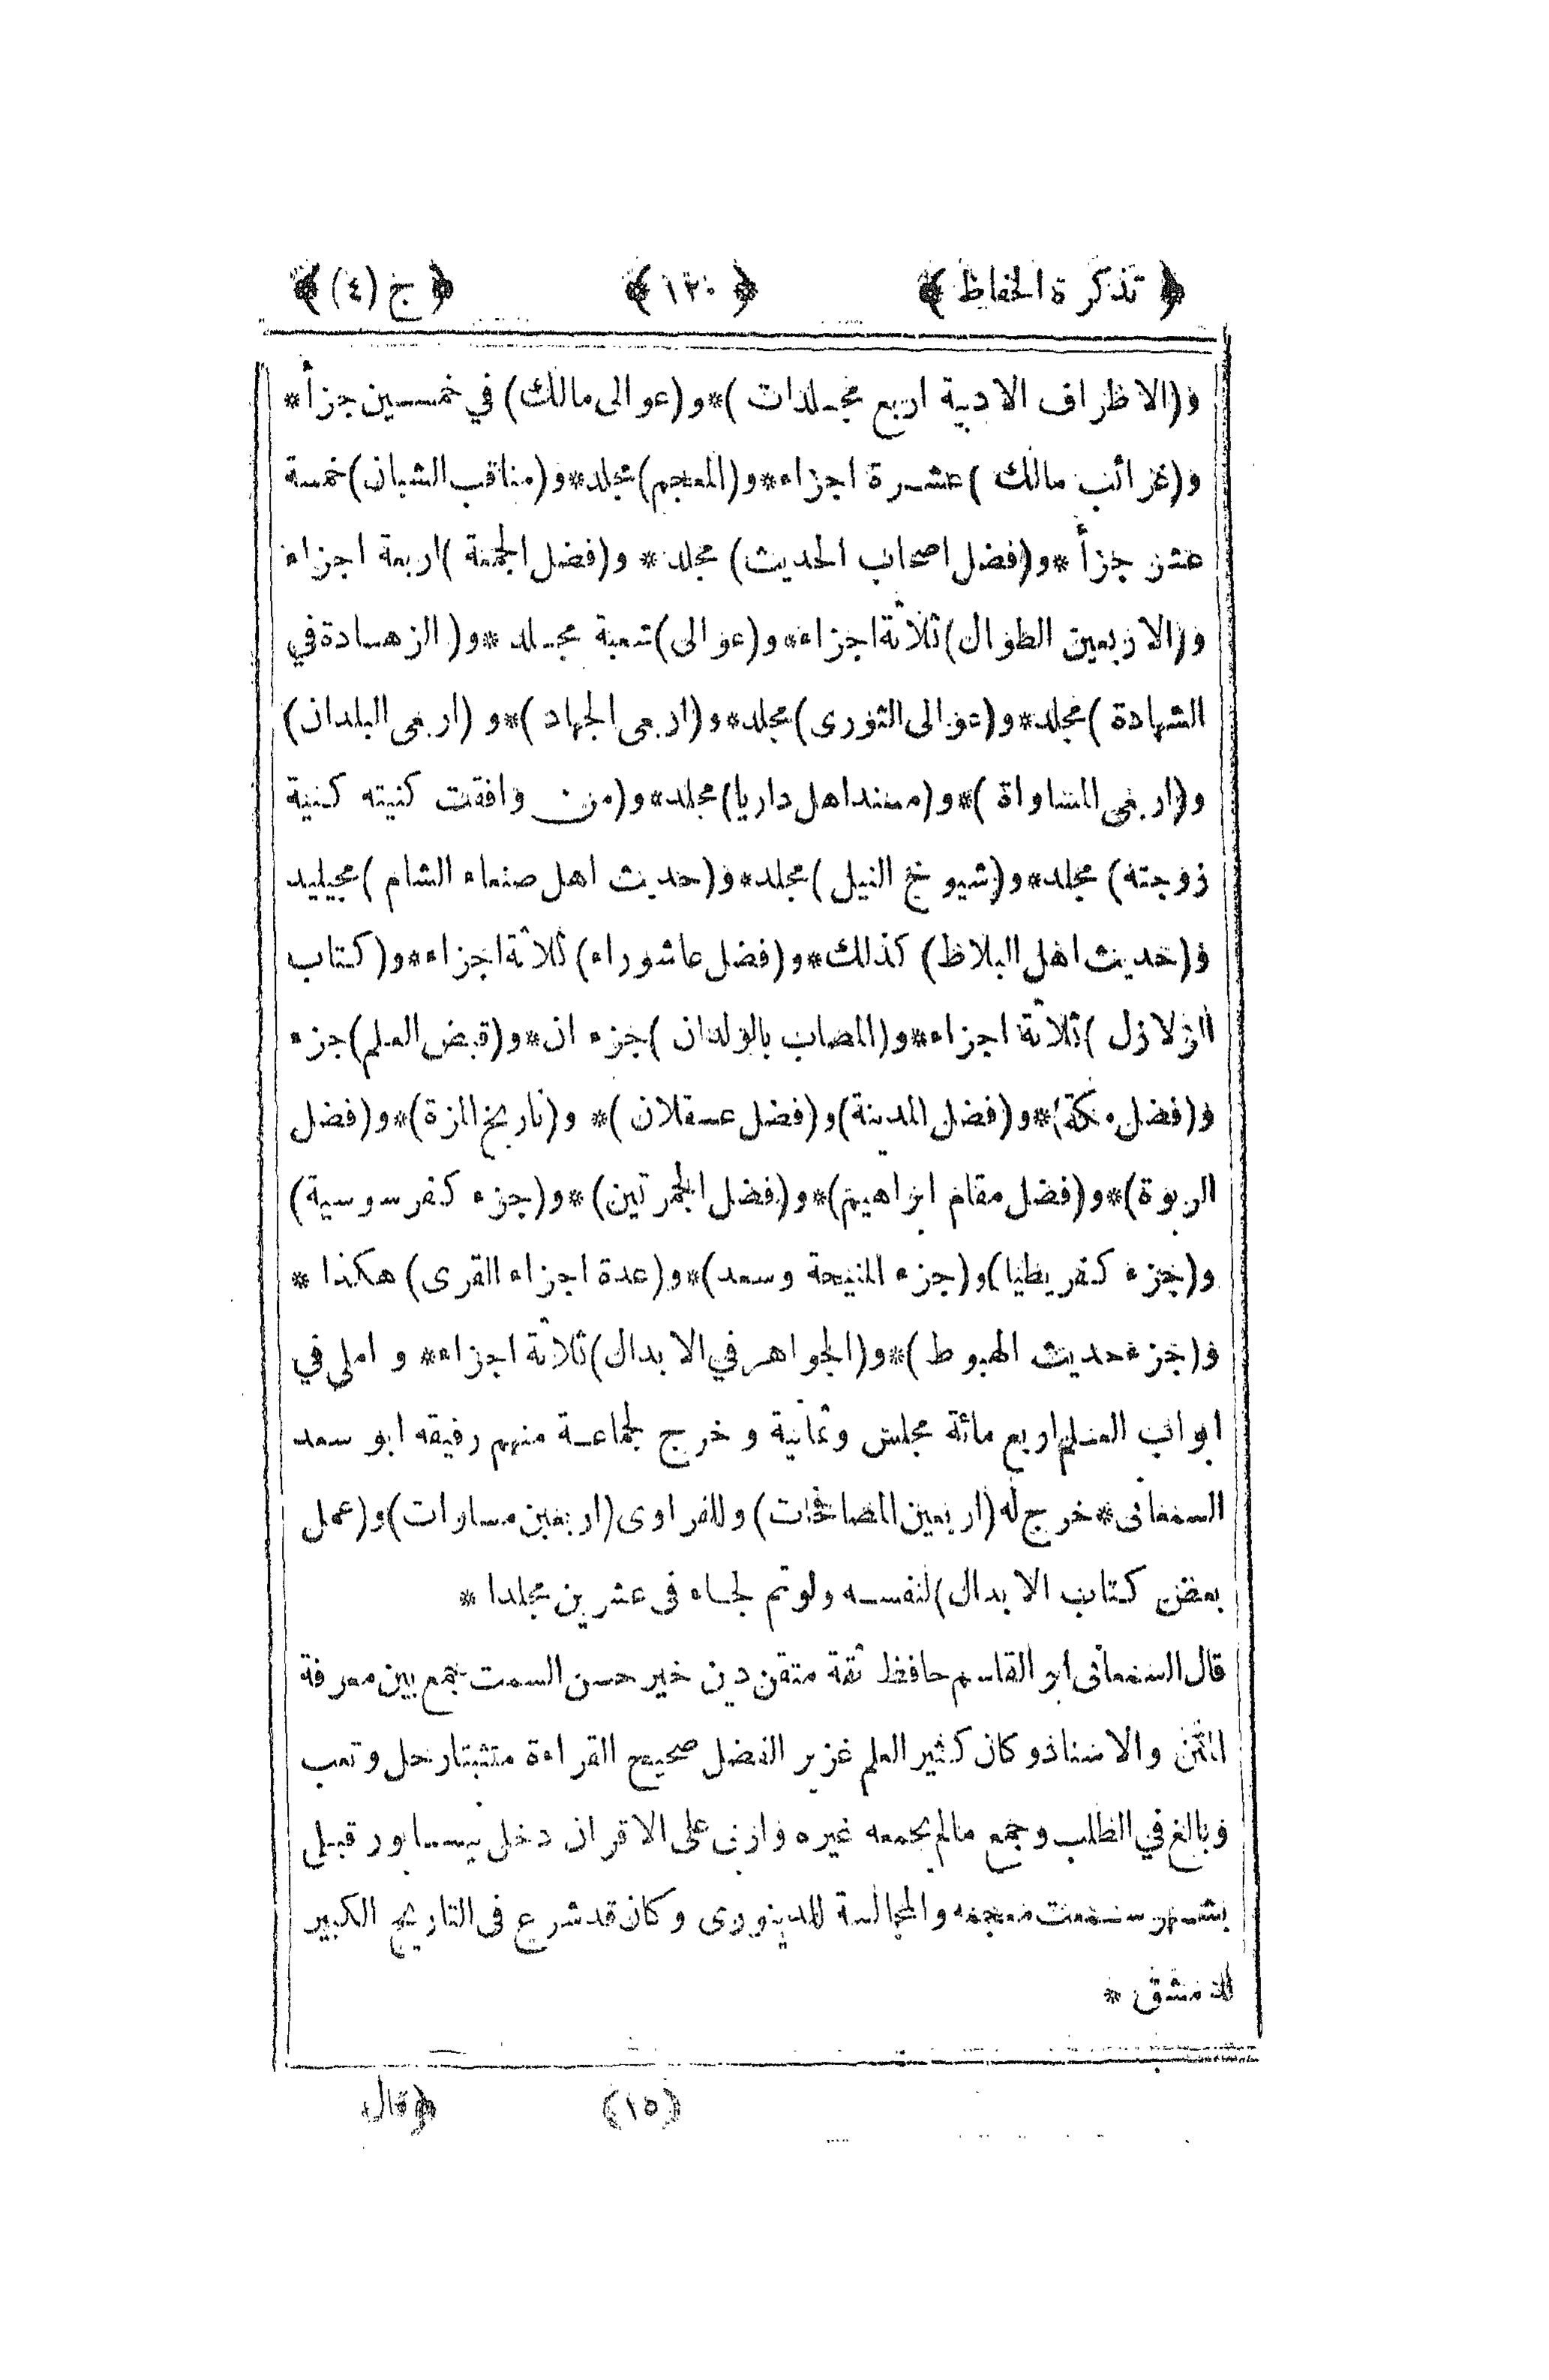 ﴿ تذكرة الحفاظ ﴾ ﴿ ١٢٠ ﴾ ﴿ ج (٤) ﴾
و(الاطراف الاربعة اربع مجلدات )*و(عوالى مالك) في خمسين جزأ*
و(غرائب مالك ) عشرة اجزاء*و(المعجم)مجلد*و(مناقب الشبان)خمسة
عشر جزأ *و(فضل اصحاب الحديث) مجلد* و(فضل الجمعة )اربعة اجزاء
و(الاربعين الطوال)ثلاثة اجزاء*و(عوالى)شعبة مجلد*و( الزهادة في
الشهادة )مجلد*و(عوالى الثورى)مجلد*و(اربعى الجهاد )*و (اربعى البلدان)
و(اربعى المساواة )*و(مسند اهل داريا)مجلد*و(من وافقت كنيته كنية
زوجته) مجلد*و(شيوخ النيل )مجلد*و(حديث اهل صنعاء الشام )مجيليد
و(حديث اهل البلاط) كذلك*و(فضل عاشوراء) ثلاثة اجزاء*و(كتاب
الزلازل )ثلاثة اجزاء*و(المصاب بالولدان )جزء ان*و(قبض العلم)جزء
و(فضل مكة)*و(فضل المدينة)و(فضل عسقلان )* و(تاريخ المزة)*و(فضل
الربوة)*و(فضل مقام ابراهيم)*و(فضل الجمرتين)*و(جزء كفر سوسية)
و(جزء كفر بطنا)و(جزء المنيحة وسعد)*و(عدة اجزاء القرى) هكذا *
و(جزء حديث الهبوط )*و(الجواهر في الابدال)ثلاثة اجزاء* و املى في
ابواب العلم اربع مائة مجلس وثمانية و خرج لجماعة منهم رفيقه ابو سعد
السمعانى*خرج له (اربعين المصافحات) وللفراوى(اربعين مساوات)و(عمل
بعض كتاب الابدال)لنفسه ولو تم لجاء فى عشرين مجلدا *
قال السمعانى ابو القاسم حافظ ثقة متقن دين خير حسن السمت جمع بين معرفة
المتن والاسناد و كان كثير العلم غزير الفضل صحيح القراءة متثبتا رحل و تعب
وبالغ في الطلب و جمع مالم يجمعه غيره و اربى على الاقران دخل نيسابور قبلى
بشهر سمعت معجمه والمجالسة للدينورى و كان قد شرع فى التاريخ الكبير
لدمشق *
(١٥) ﴿قال